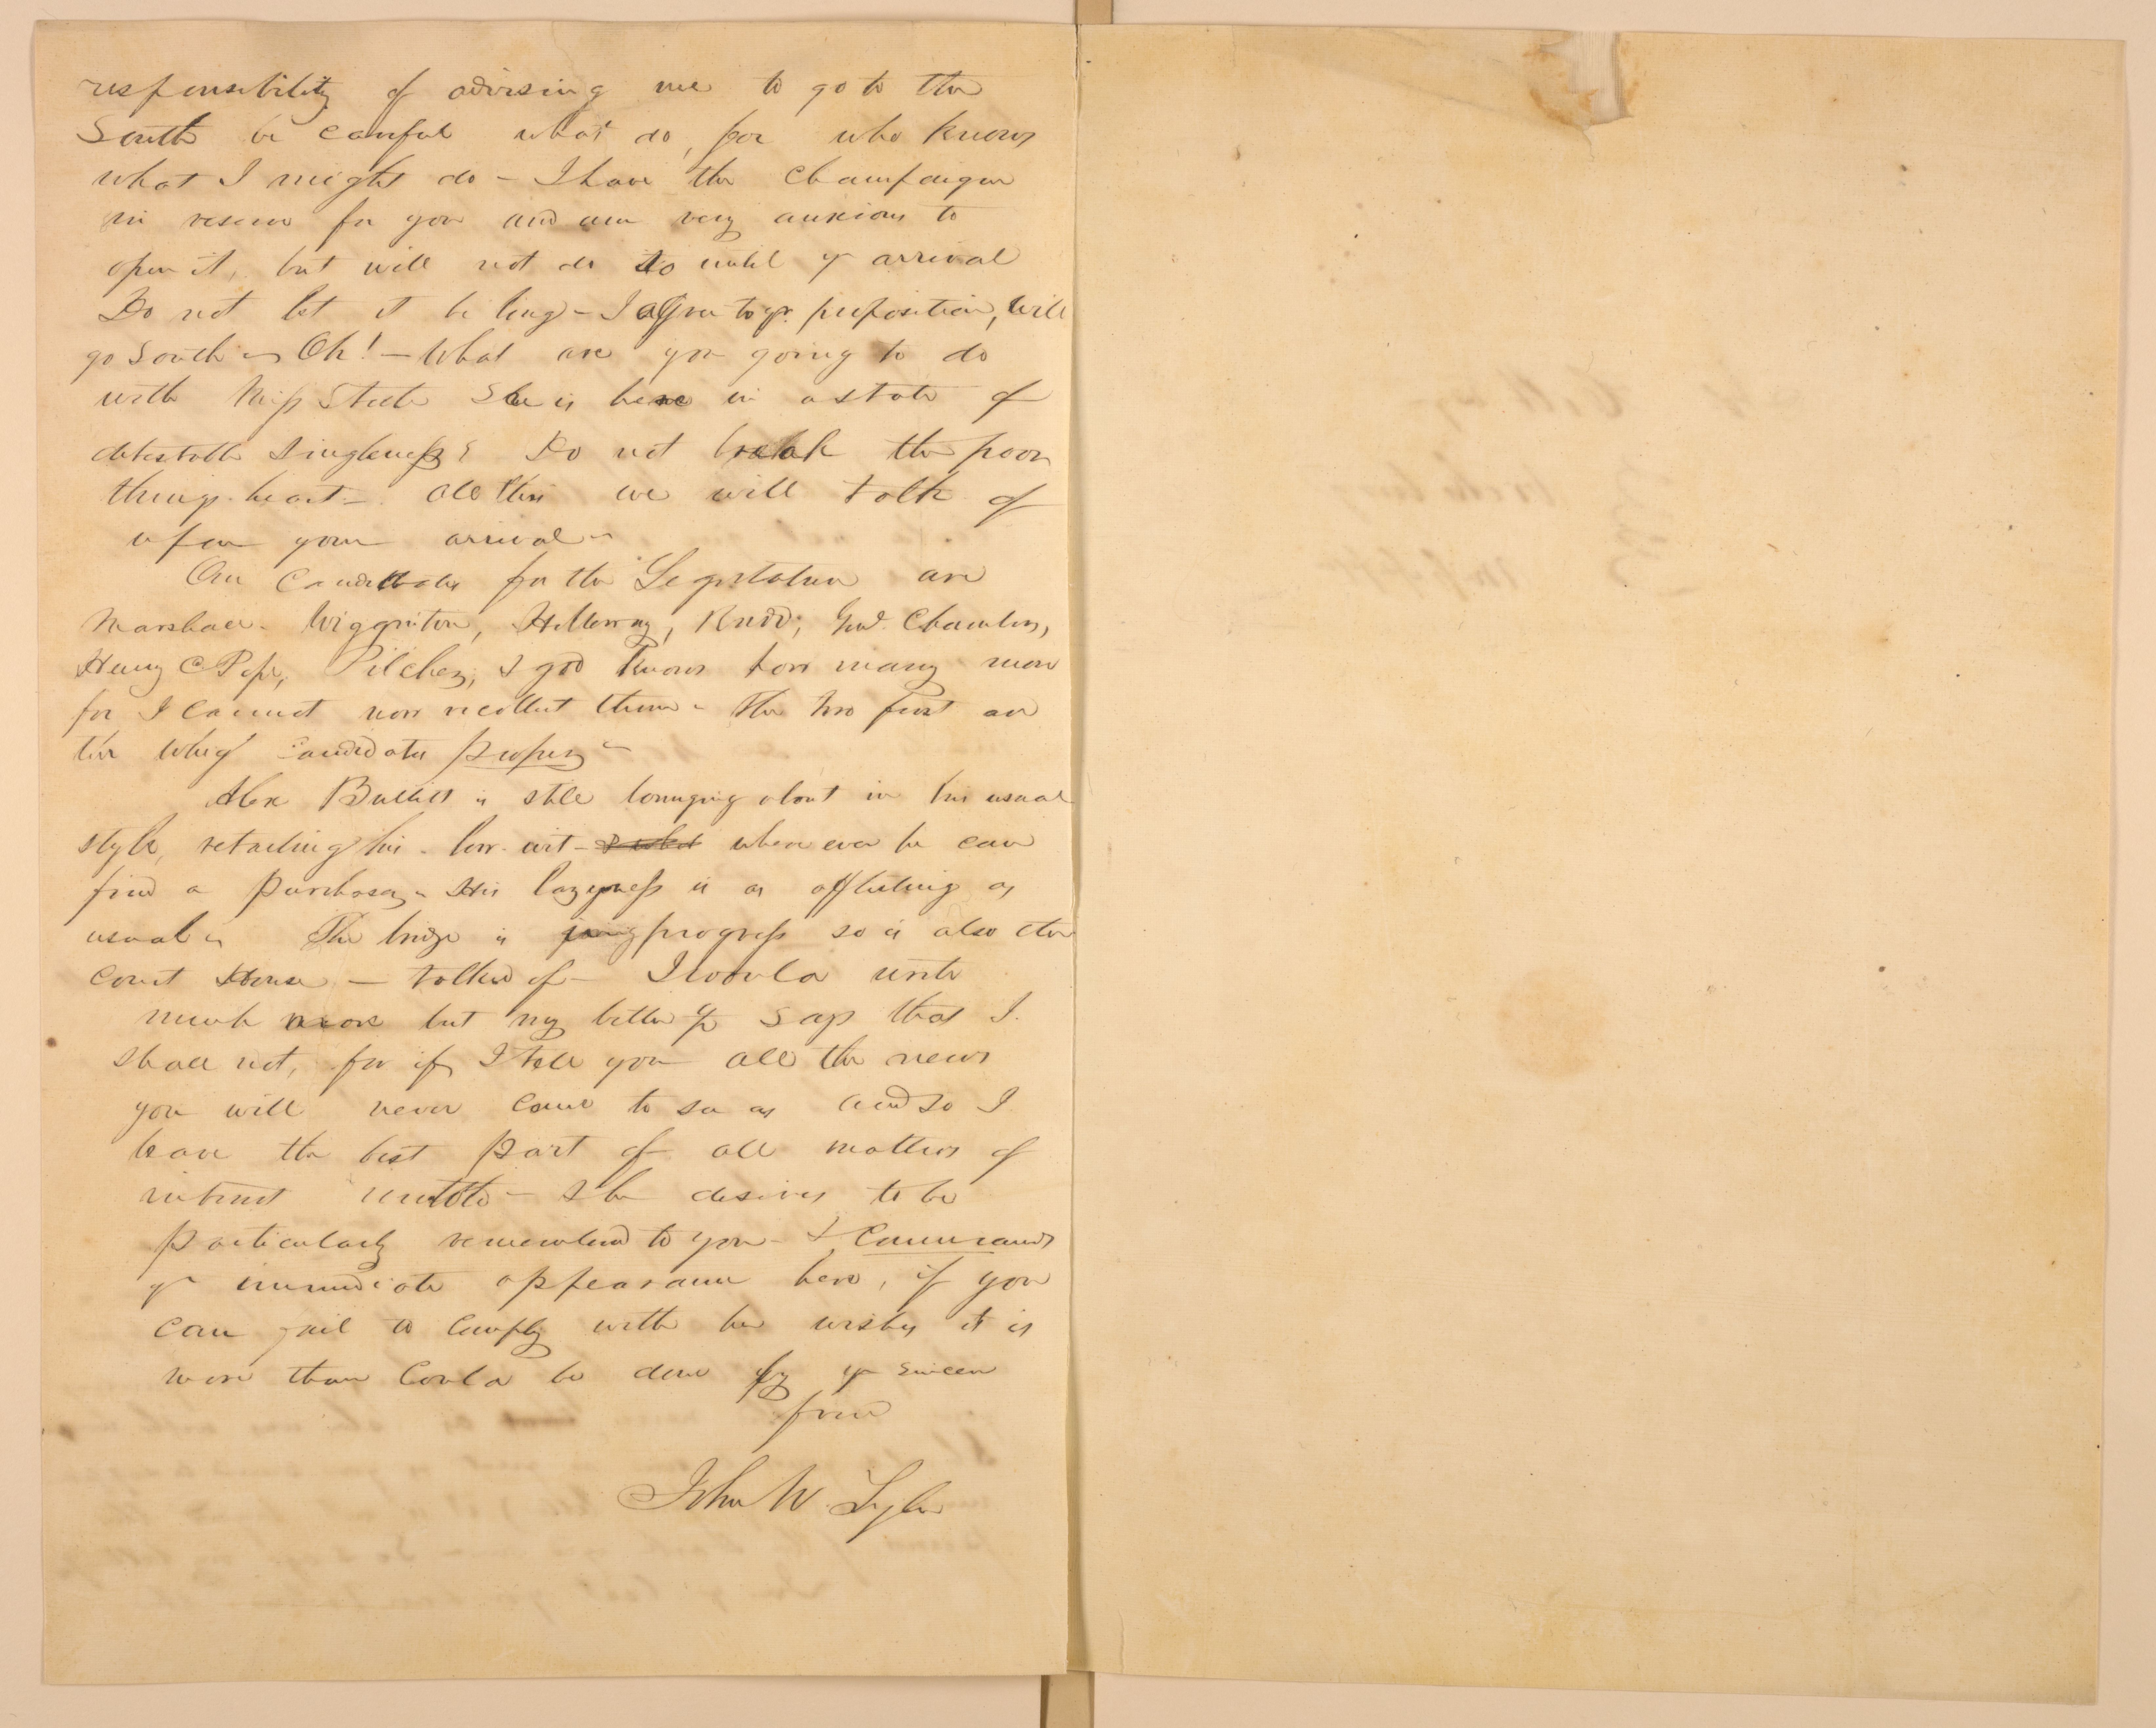 responsibility of advising me to go to the
South be careful what do, for who knows
what I might do – I have the Champaigne
in reserve for you and am very anxious to
open it, but will not do so until yr arrival
Do not let it be long – I agree to yr. proposition, will
go South – Oh! – What are you going to do
with Miss Steele She is here in a state of
detestable Singleness! Do not break the poor
things heart – All this we will talk of
upon your arrival –
Our Candidates for the Legislature are
Marshall – Wigginton, Holloway, Rudd, Genl. Chambers,
Henry C Pope, Pilcher, & god knows how many more
for I cannot now recollect them – The two first are
the Whig candidates proper –
Alex Bullitt is still lounging about in his usual
style, retailing his low wit – whenever he can
find a Purchaser – His lazyness is as afflicting as
usual – The bridge is progress so is also the
Court House – talked of – I would write
much more but my better ½ says that I
shall not, for if I tell you all the news
you will never come to see us and so I
leave the best part of all matters of
interest untold – She desires to be
particularly remembered to you – & Commands
yr immediate appearance here, if you
can fail to comply with her wishes it is
more than could be done by yr sincere
friend
John W. Tyler